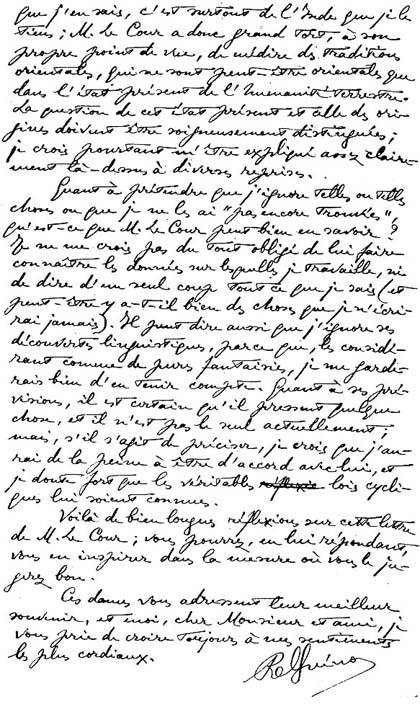 que j'en sais, c'est surtout de l'Inde que je le
tiens ; M. Le Cour a donc grand tort, à son
propre point de vue, de médire des traditions
orientales, qui ne sont peut-être orientales que
dans l'état présent de l'humanité terrestre.
La question de cet état présent et celle des ori-
gines doivent être soigneusement distinguées ;
je crois pourtant m'être expliqué assez claire-
ment là-dessus à diverses reprises.
Quant à prétendre que j'ignore telles ou telles
choses ou que je ne les ai "pas encore trouvées",
qu'est-ce que M. Le Cour peut bien en savoir ?
Je ne me crois pas du tout obligé de lui faire
connaître les données sur lesquelles je travaille, ni
de dire d'un seul coup tout ce que je sais (et
peut-être y a-t-il bien des choses que je n'écri-
rai jamais). Il peut dire aussi que j'ignore ses
découvertes linguistiques, parce que, les considé-
rant comme de pures fantaisies, je me garde-
rais bien d'en tenir compte. Quant à ses pré-
visions, il est certain qu'il pressent quelque
chose, et il n'est pas le seul actuellement ;
mais, s'il s'agit de préciser, je crois que j'au-
rai de la peine à être d'accord avec lui, et
je doute fort que les véritables lois cycli-
ques lui soient connues.
Voilà de bien longues réflexions sur cette lettre
de M. Le Cour ; vous pourrez, en lui répondant,
vous en inspirer dans la mesure où vous le ju-
gerez bon.
Ces dames vous adressent leur meilleur
souvenir, et moi, cher Monsieur et ami, je
vous prie de croire toujours à mes sentiments
les plus cordiaux.
René Guénon